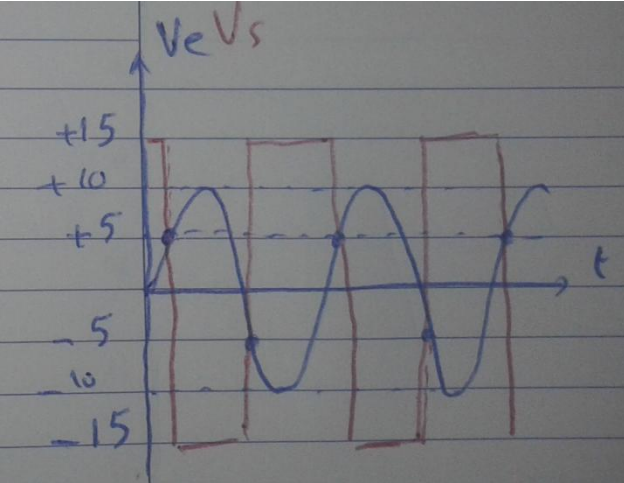 Ve Vs
+15
+10
+5
t
-5
-10
-15